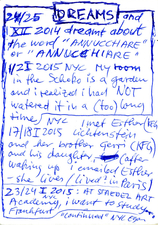 24/25 DREAMS and
XII 2014 dreamt about
the word "ANNUCCHIARE"
or "ANNUCCHIARE"
1/2 I 2015 NYC My room
in the Schepo is a garden
and i realized i had NOT
watered it in a (too) long
time/ NYC I met Esther (KFG)
17/18 I 2015 Lichtenstein
and her brother Gerri (KFG)
and his daughter, (after
waking up i emailed Esther -
she lives / lived in Paris)
23/24 I 2015: AT STAEDEL ART
Academy, i want to study
Frankfurt "continual" NYC